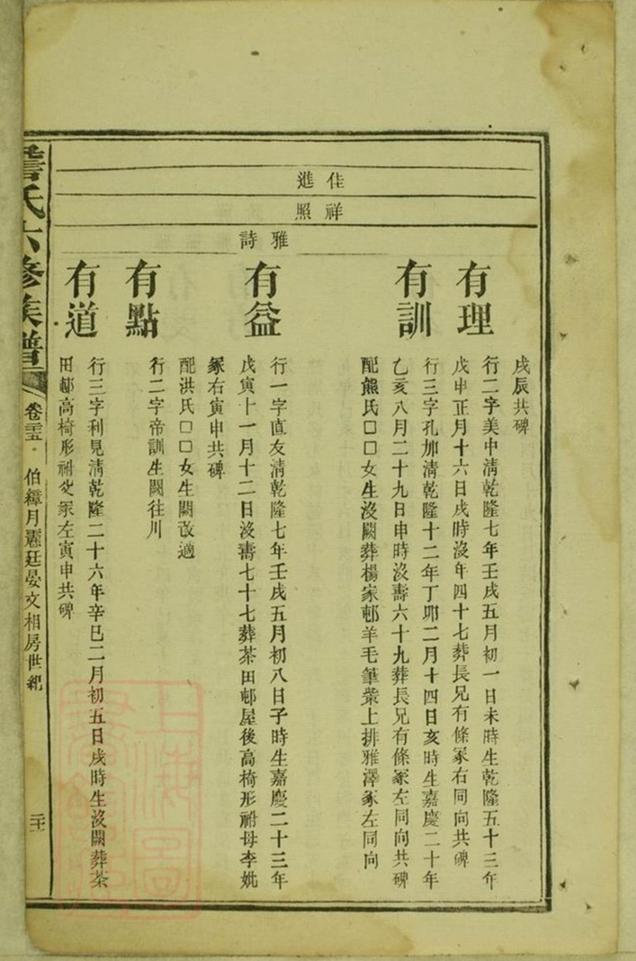 佳進
祥照
雅詩
戌辰共碑
有理
行二字美中清乾隆七年壬戌五月初一日未時生乾隆五十三年
戊申正月十六日戌時沒年四十七葬長兄有條冢右同向共碑
有訓
行三字孔加清乾隆十二年丁卯二月十四日亥時生嘉慶二十年
乙亥八月二十九日申時沒壽六十九葬長兄有條冢左同向共碑
配熊氏□□女生沒闕葬楊家邨羊毛筆嶪上排雅澤冢左同向
有益
行一字直友清乾隆七年壬戌五月初八日子時生嘉慶二十三年
戊寅十一月十二日沒壽七十七葬茶田邨屋後高椅形祔母李妣
冢右寅申共碑
配洪氏□□女生闕改適
有點
行二字帝訓生闕往川
有道
行三字利見清乾隆二十六年辛巳二月初五日戌時生沒闕葬茶
田邨高椅形祔父冢左寅申共碑
詹氏六修族譜
卷三五 伯緯月麗廷晏文相房世紀
二十